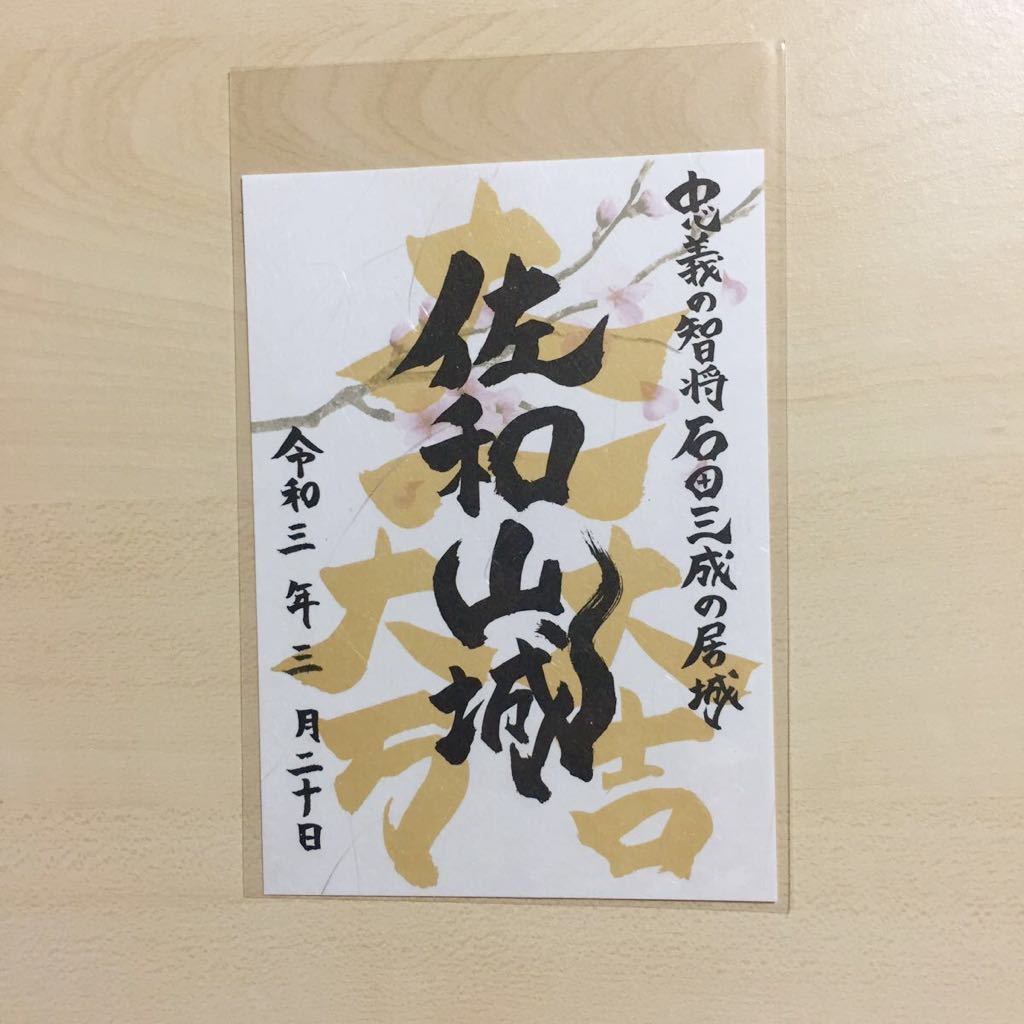 忠義の智将石田三成の居城
佐和山城
大一大吉大万
令和三年三月二十日